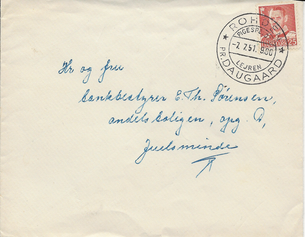 ROHDEN
PIGESPEJDER
-7.7.51. 930
LEJREN
PR. DAUGAARD
Hr og fru
Bankbestyrer E. Th. Sørensen,
andelsboligen, opg. D,
Juelsminde